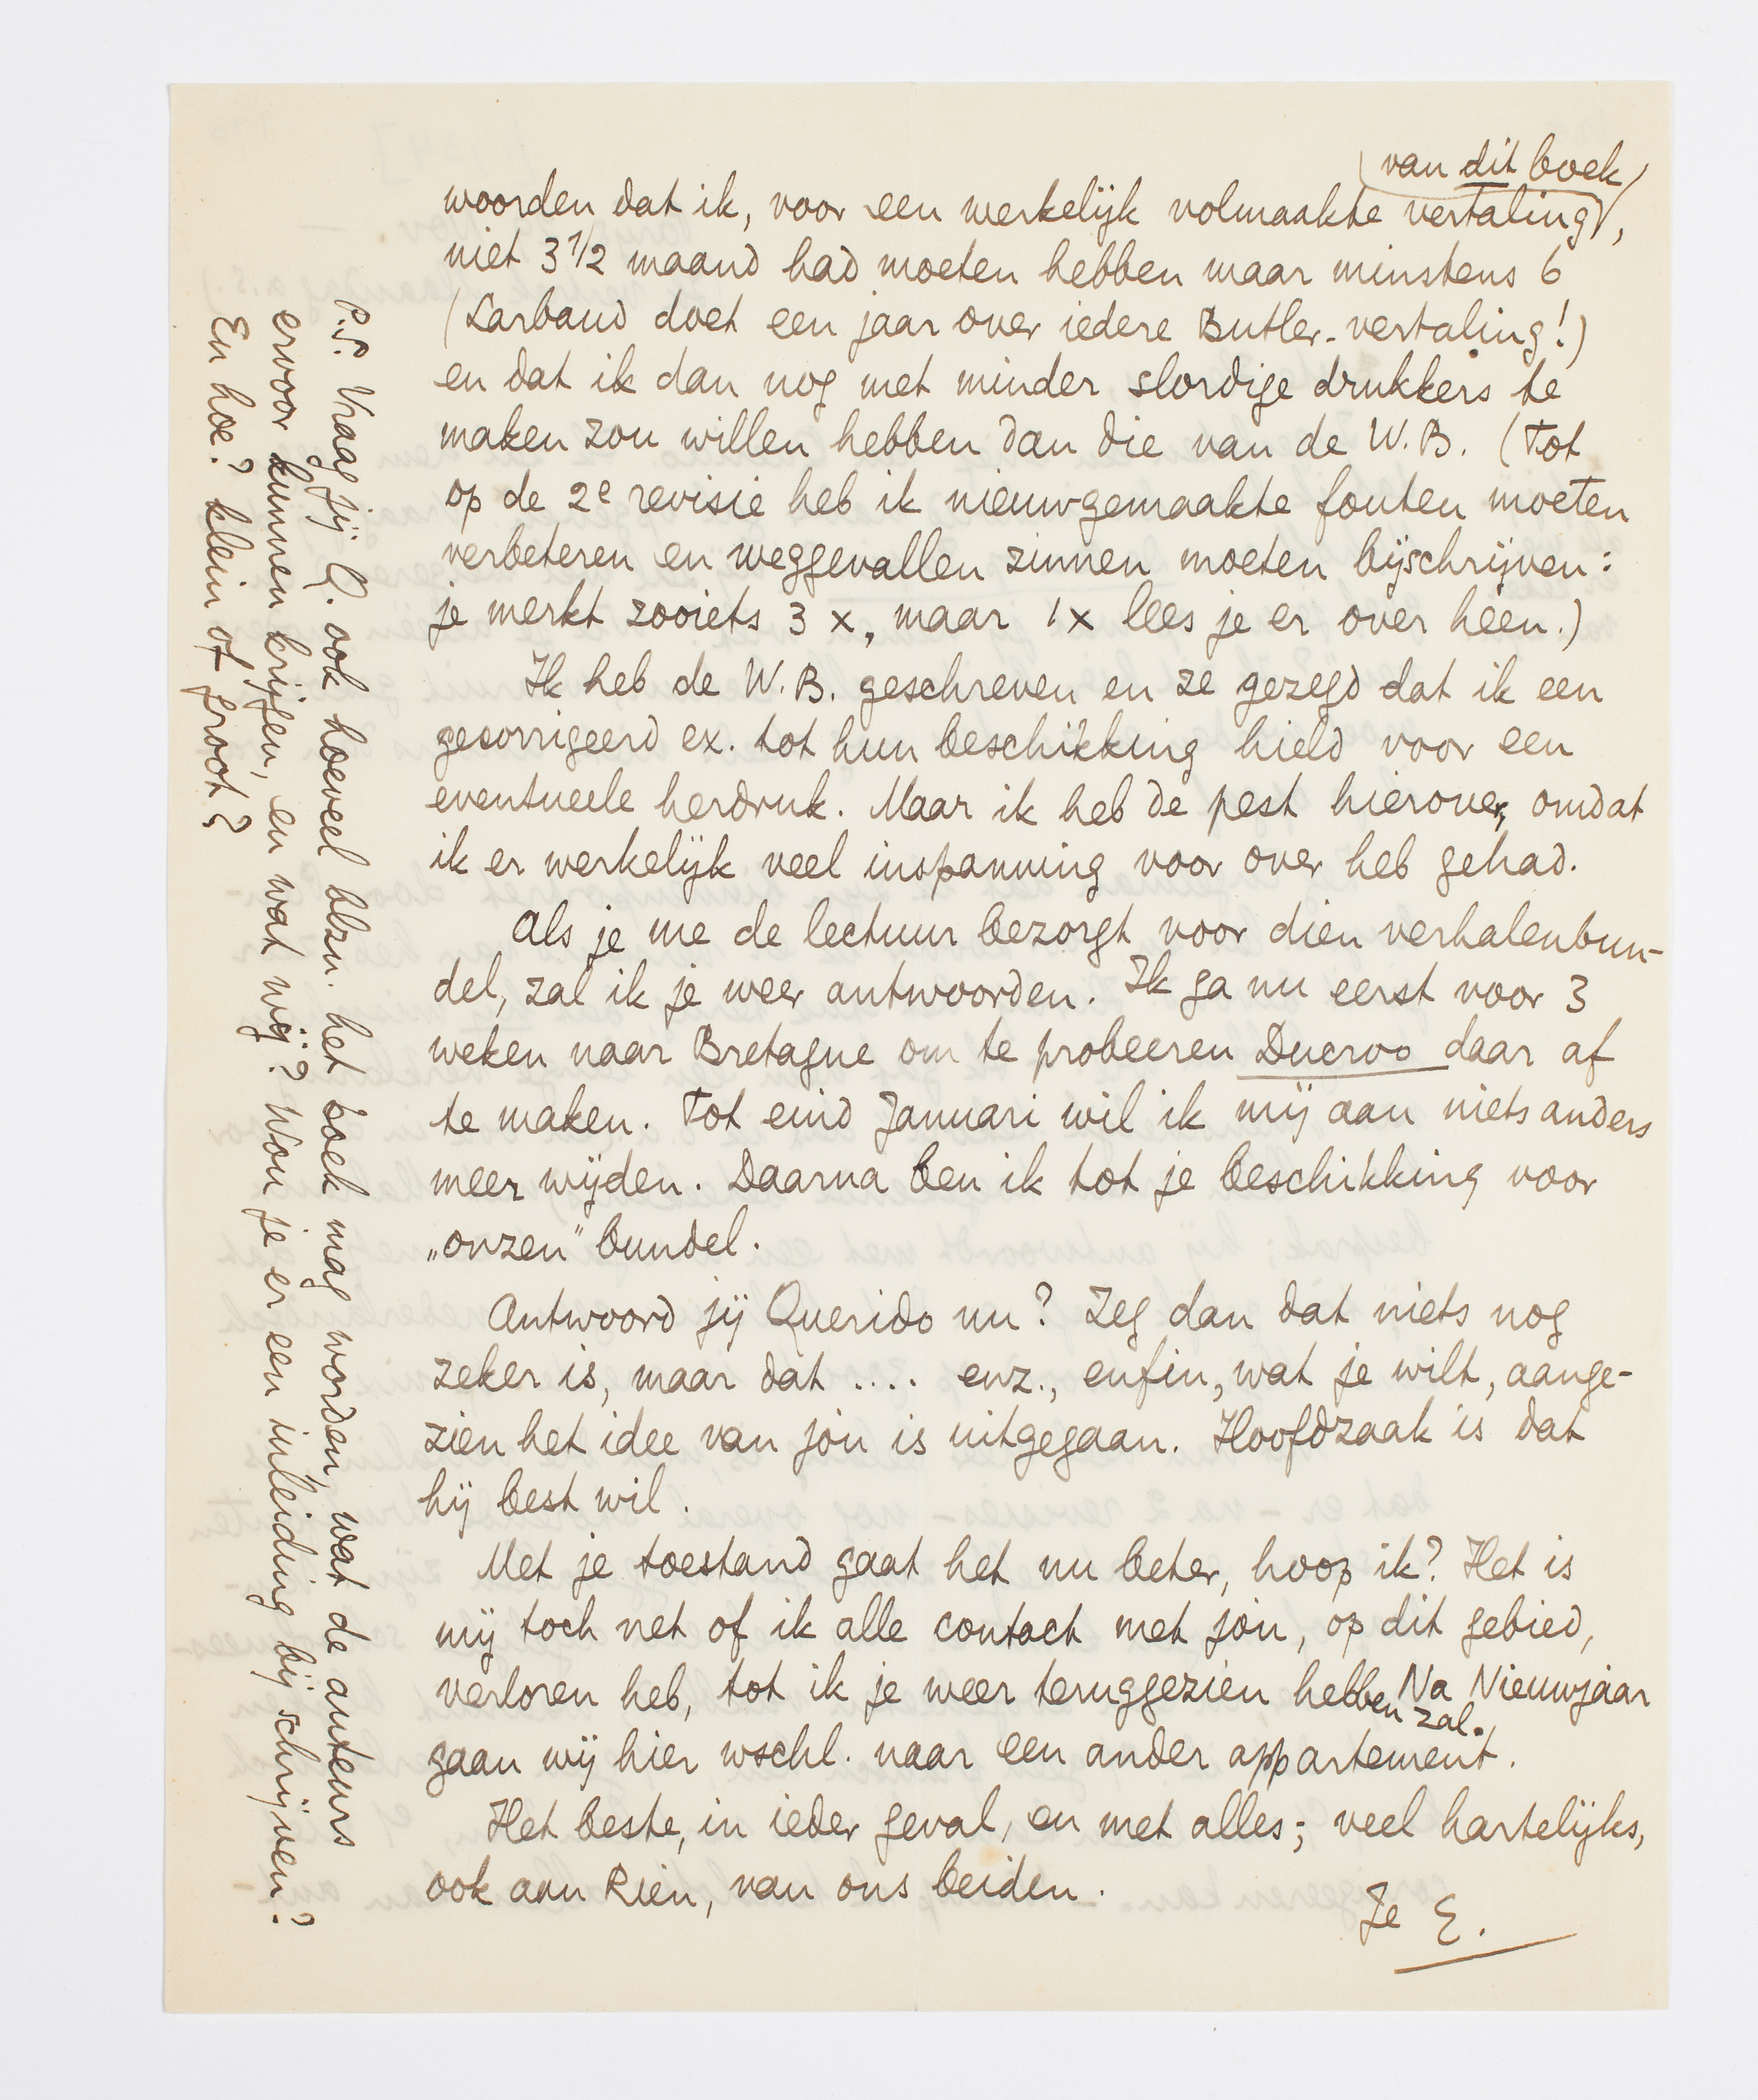 van dit boek
woorden dat ik, voor een werkelijk volmaakte vertaling,
niet 3 1/2 maand had moeten hebben maar minstens 6
(Larbaud doet een jaar over iedere Butler-vertaling!)
en dat ik dan nog met minder slordige drukkers te
maken zou willen hebben dan die van de W.B. (Tot
op de 2e revisie heb ik nieuwgemaakte fouten moeten
verbeteren en weggevallen zinnen moeten bijschrijven:
je merkt zooiets 3 x, maar 1 x lees je er over héén.)
Ik heb de W.B. geschreven en ze gezegd dat ik een
gecorrigeerd ex. tot hun beschikking hield voor een
eventueele herdruk. Maar ik heb de pest hierover, omdat
ik er werkelijk veel inspanning voor over heb gehad.
Als je me de lectuur bezorgt voor dien verhalenbun-
del, zal ik je weer antwoorden. Ik ga nu eerst voor 3
weken naar Bretagne om te probeeren Ducroo daar af
te maken. Tot eind Januari wil ik mij aan niets anders
meer wijden. Daarna ben ik tot je beschikking voor
„onzen" bundel.
Antwoord jij Querido nu? Zeg dan dat niets nog
zeker is, maar dat .... enz., enfin, wat je wilt, aange-
zien het idee van jóu is uitgegaan. Hoofdzaak is dat
hij best wil.
Met je toestand gaat het nu beter, hoop ik? Het is
mij toch net of ik alle contact met jóu, op dit gebied,
verloren heb, tot ik je weer teruggezien hebben zal. Na Nieuwjaar
gaan wij hier wschl. naar een ander appartement.
Het beste, in ieder geval, en met alles; veel hartelijks,
ook aan Rien, van ons beiden.
Je E.
P.S. Vraag jij Q. ook hoeveel blzn. het boek mag worden, wat de auteurs
ervoor kunnen krijgen, en wat wij? Wou je er een inleiding bij schrijven?
En hoe? klein of groot?